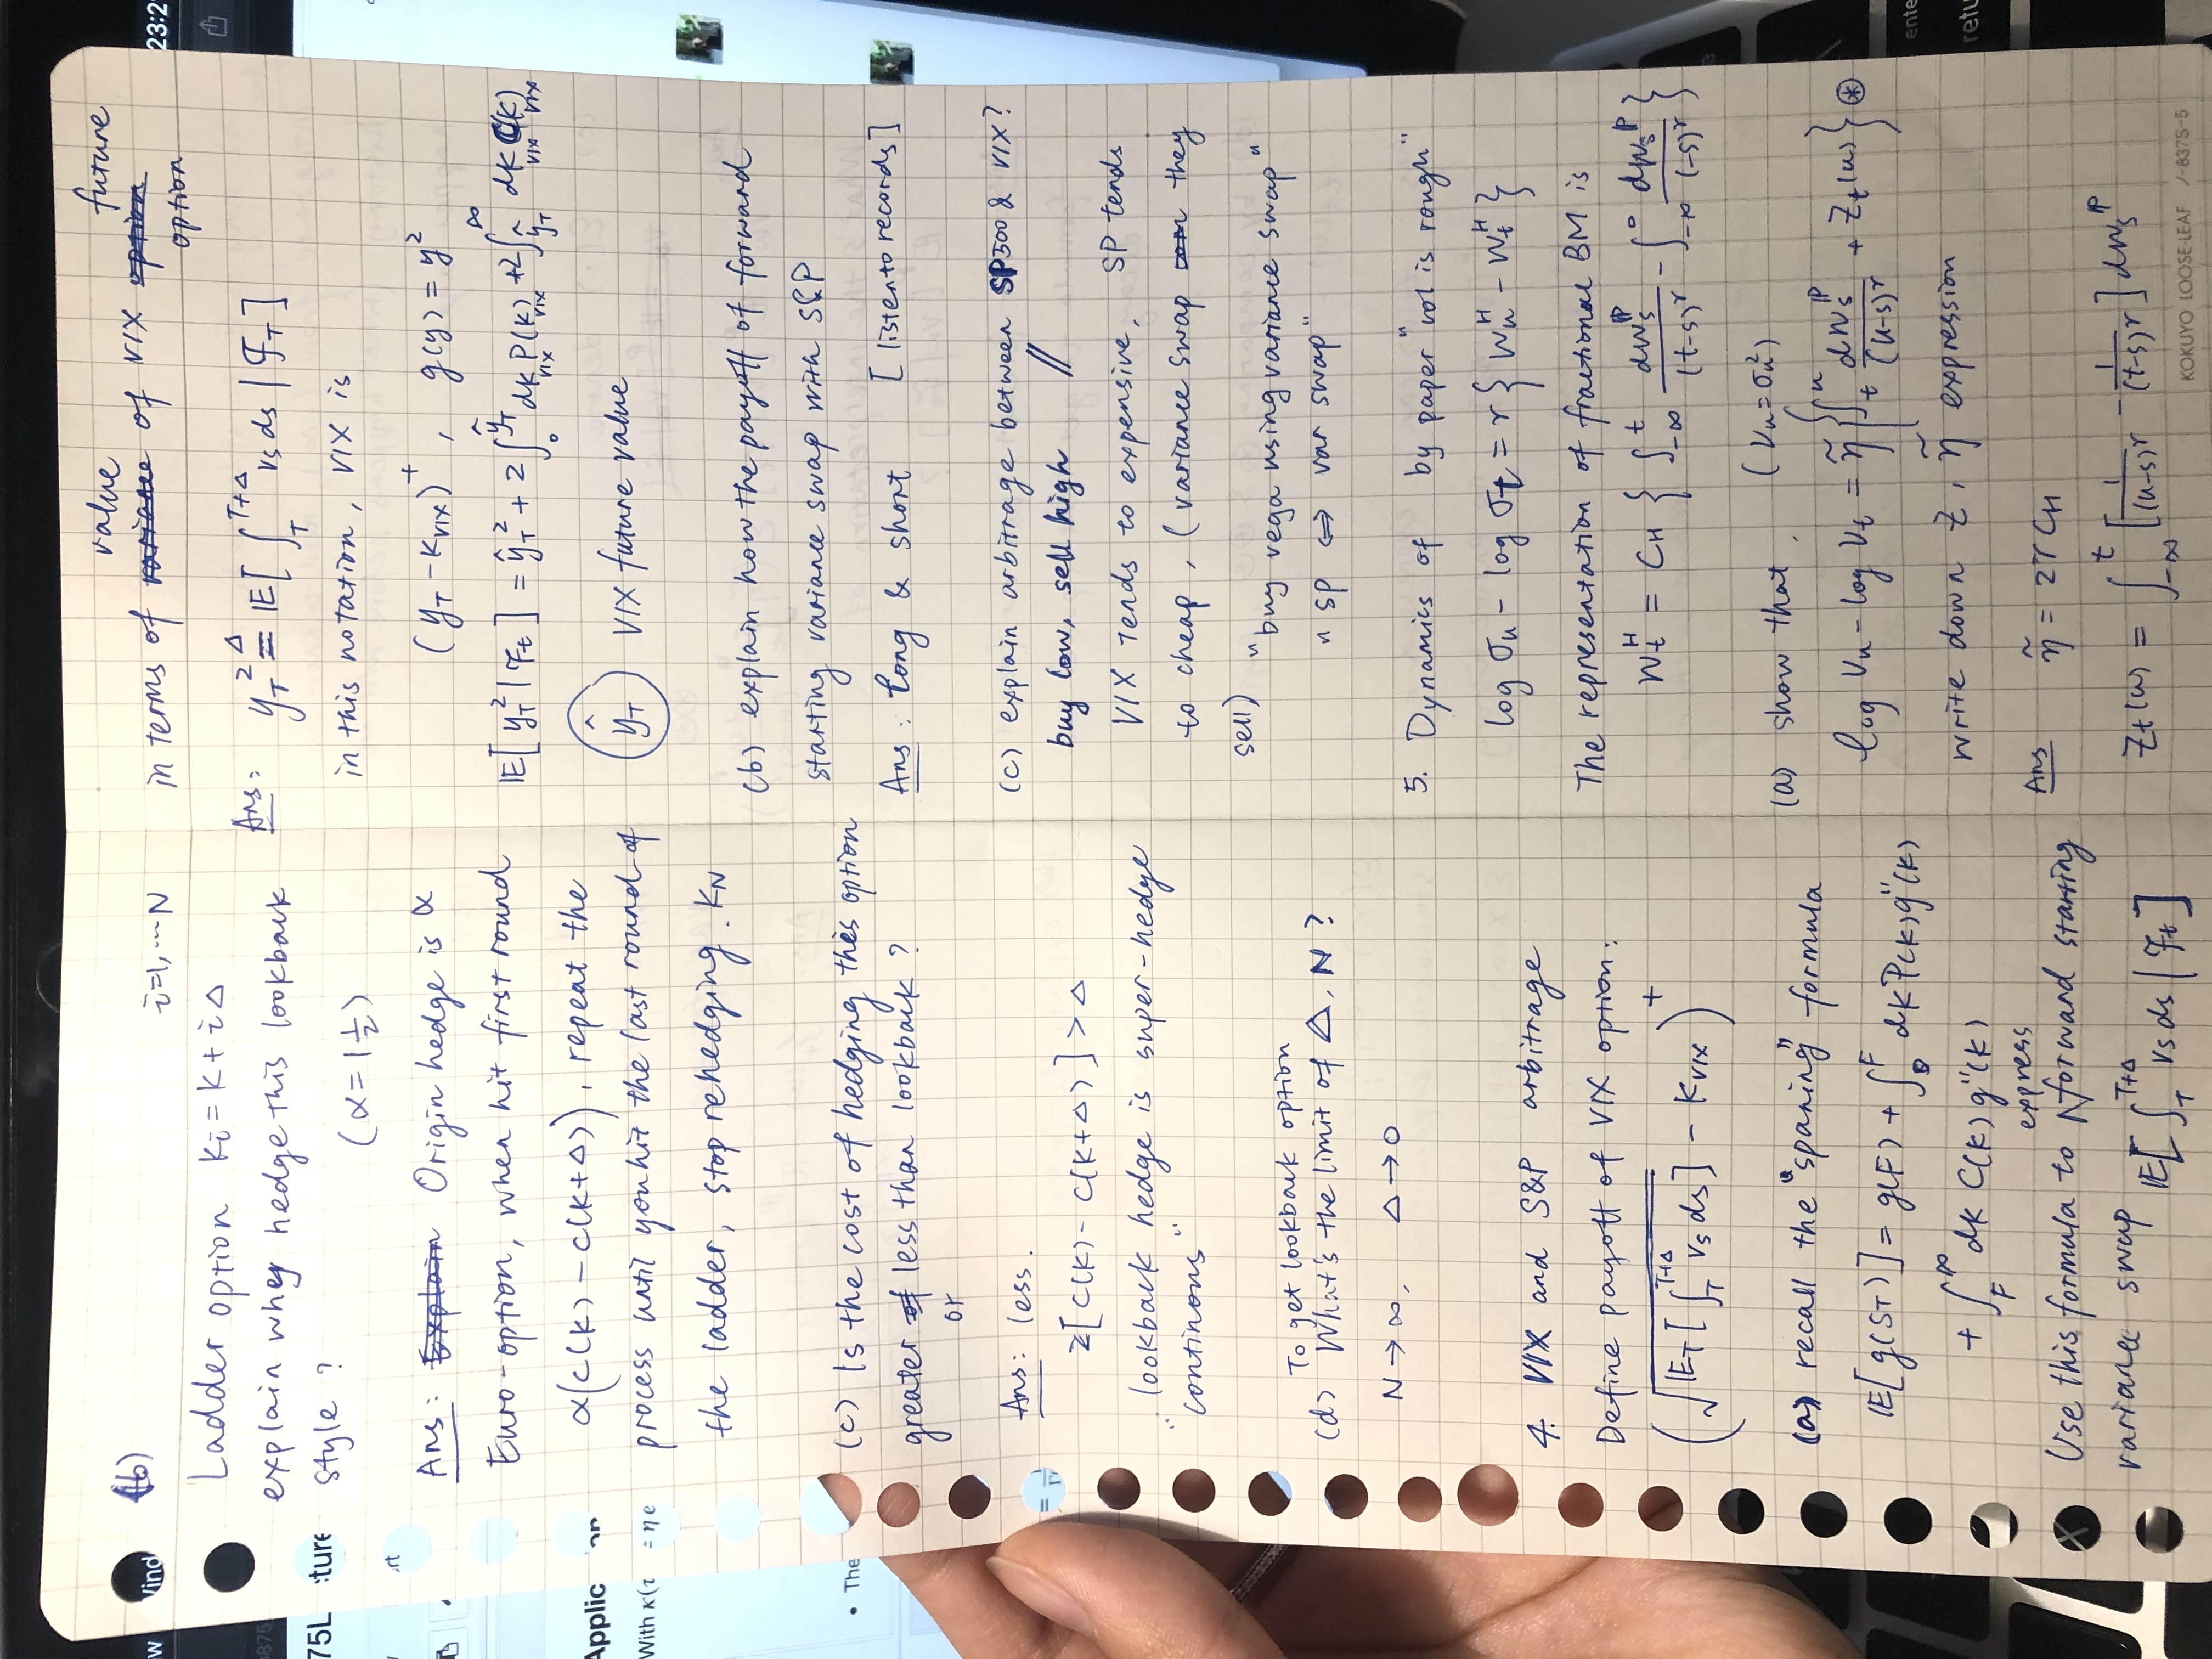 (b)
i=1, ... N
Ladder option Ki = K + i Δ
explain whey hedge this lookback
style ?
(α = 1 ½)
Ans : Explain Origin hedge is α
Euro-option, when hit first round
α(C(K) - C(K+Δ)), repeat the
process until you hit the last round of
the ladder, stop rehedging. KN
(c) Is the cost of hedging this option
greater of less than lookback ?
or
Ans: less.
2[C(K) - C(K+Δ)] > Δ
lookback hedge is super-hedge
"continous"
To get lookback option
(d) What's the limit of Δ, N ?
N → ∞, Δ → 0
4. VIX and S&P arbitrage
Define payoff of VIX option:
(√IE_T[∫_T^{T+Δ} vs ds] - K_VIX)^+
(a) recall the "spaning" formula
IE[g(S_T)] = g(F) + ∫_0^F dK P(K) g''(K)
+ ∫_F^∞ dK C(K) g''(K)
express
Use this formula to ∧ forward starting
variance swap
IE[∫_T^{T+Δ} vs ds | F_t]
value future
in terms of variance of VIX option
option
Ans: y_T^2 ≜ IE[∫_T^{T+Δ} vs ds | F_T]
in this notation, VIX is
(y_T - K_VIX)^+ , g(y) = y^2
IE[y_T^2 | F_t] = ŷ_T^2 + 2∫_0^{ŷ_T} dK_VIX P(K_VIX) + 2∫_{ŷ_T}^∞ dK_VIX C(K_VIX)
ŷ_T VIX future value
(b) explain how the payoff of forward
starting variance swap with S&P
Ans : Long & short [listen to records]
(c) explain arbitrage between SP500 & VIX?
buy low, sell high //
VIX tends to expensive, SP tends
to cheap, (variance swap they
sell)
"buy vega using variance swap"
"SP ⇔ var swap"
5. Dynamics of by paper "vol is rough"
log σ_u - log σ_t = r { W_u^H - W_t^H }
The representation of fractional BM is
W_t^H = C_H { ∫_{-∞}^t dW_s^P/(t-s)^r - ∫_{-∞}^0 dW_s^P/(-s)^r }
(a) show that, (V_u = σ_u^2)
log V_u - log V_t = η̃ { ∫_t^u dW_s^P/(u-s)^r + Z_t(u) } ⊛
write down Z, η̃ expression
Ans η̃ = 2r C_H
Z_t(u) = ∫_{-∞}^t [1/(u-s)^r - 1/(t-s)^r] dW_s^P
KOKUYO LOOSE-LEAF ノ-837S-5
23:2
75L
:ture
Applic
With κ(τ
= η e
• The
vind
.rt
ente
retu